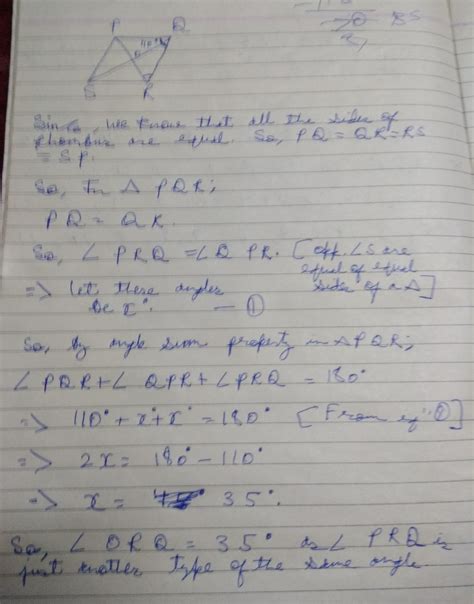 P Q
O
S R
Since, we know that all the sides of
rhombus are equal. So, PQ = QR = RS
= SP.
So, In Δ PQR;
PQ = QR.
So, ∠ PRQ = ∠ QPR. [Opp. ∠s are
equal of equal
sides of a Δ]
=> Let these angles
be x°. — ①
So, by angle sum property in Δ PQR;
∠ PQR + ∠ QPR + ∠ PRQ = 180°
=> 110° + x° + x° = 180° [From eqⁿ ①]
=> 2x = 180° - 110°
=> x = 35°.
So, ∠ ORQ = 35° as ∠ PRQ is
just another type of the same angle.